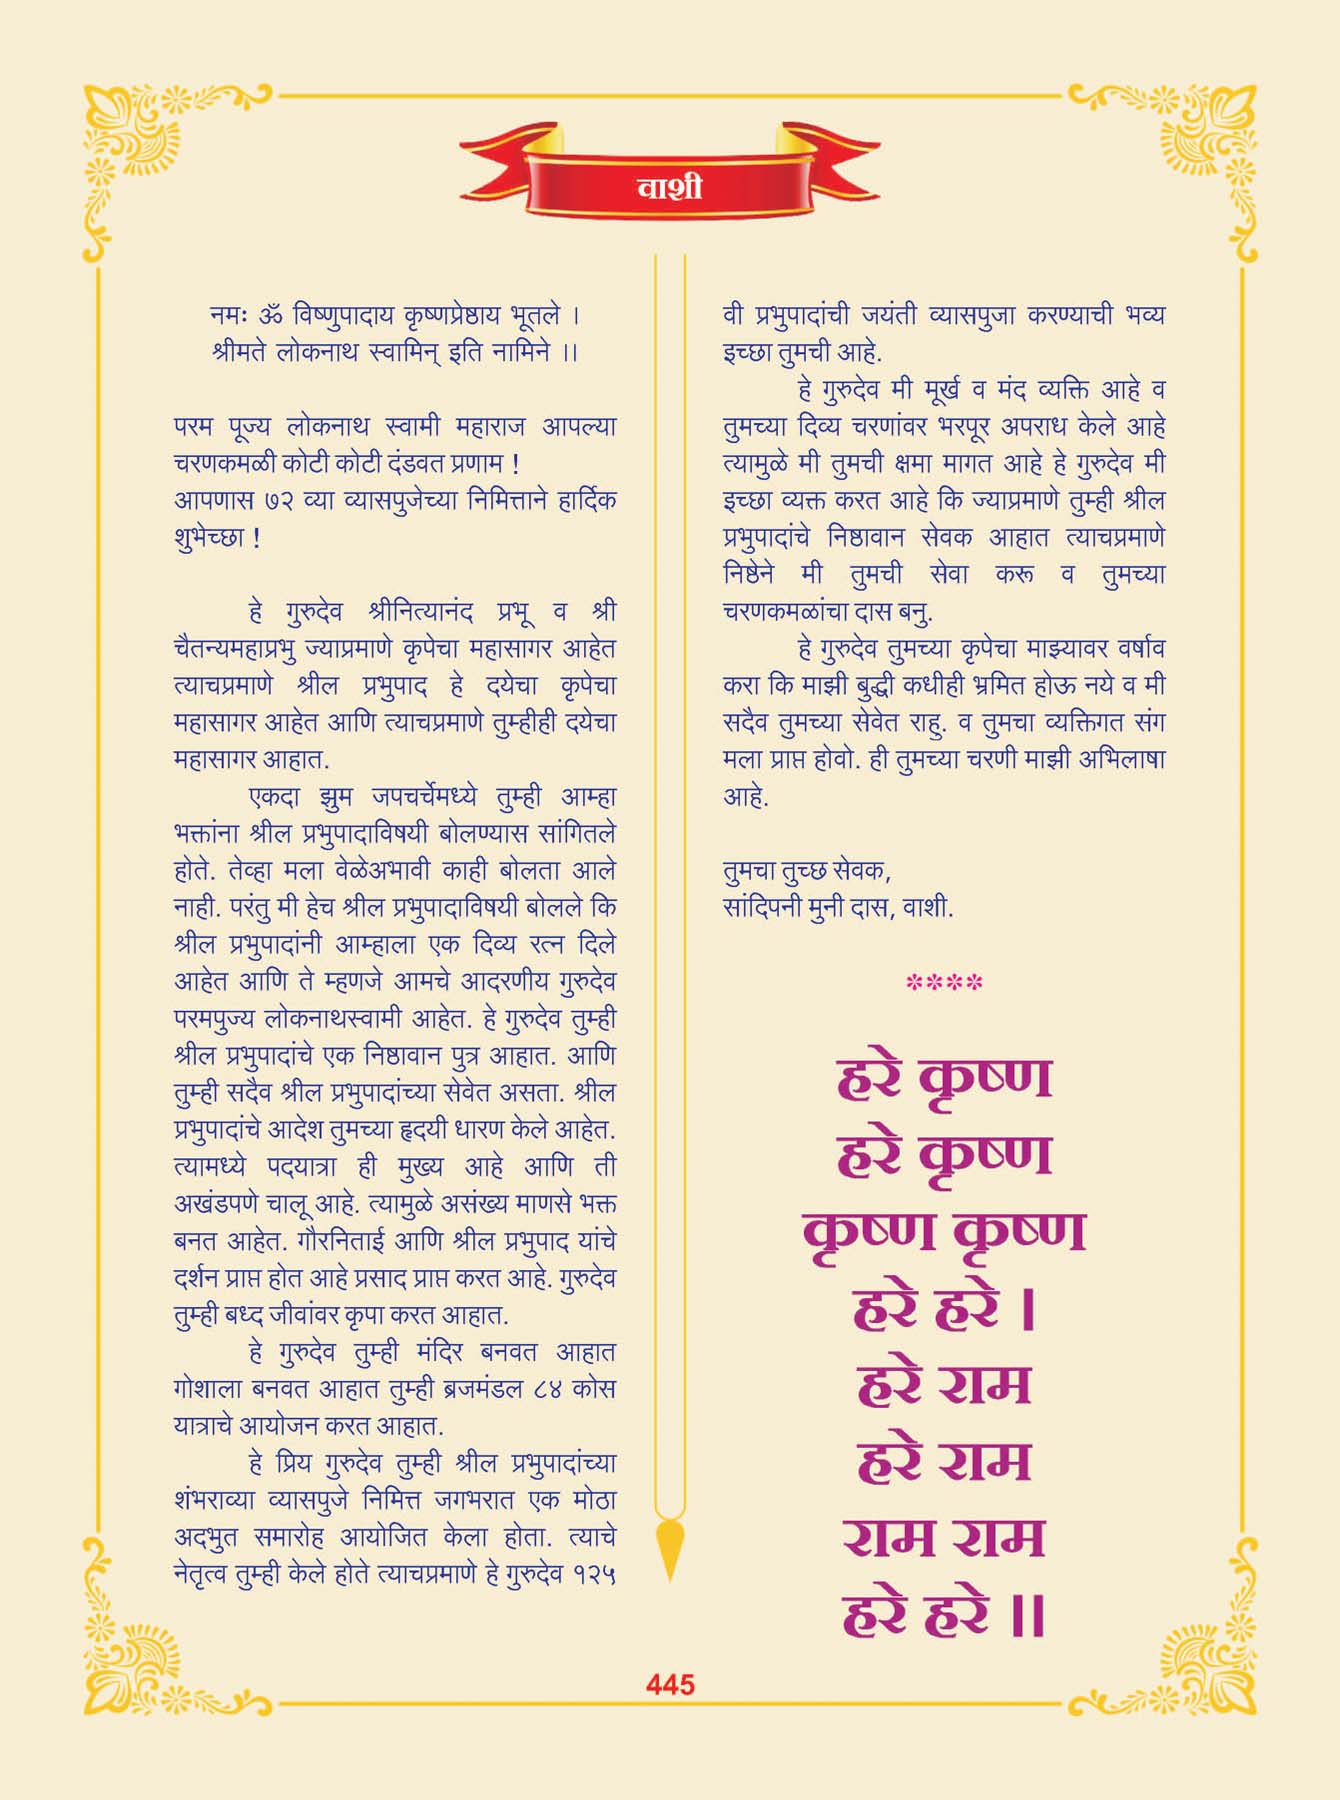 वाशी
नमः ॐ विष्णुपादाय कृष्णप्रेष्ठाय भूतले ।
श्रीमते लोकनाथ स्वामिन् इति नामिने ।।
परम पूज्य लोकनाथ स्वामी महाराज आपल्या
चरणकमळी कोटी कोटी दंडवत प्रणाम !
आपणास ७२ व्या व्यासपुजेच्या निमित्ताने हार्दिक
शुभेच्छा !
हे गुरुदेव श्रीनित्यानंद प्रभू व श्री
चैतन्यमहाप्रभु ज्याप्रमाणे कृपेचा महासागर आहेत
त्याचप्रमाणे श्रील प्रभुपाद हे दयेचा कृपेचा
महासागर आहेत आणि त्याचप्रमाणे तुम्हीही दयेचा
महासागर आहात.
एकदा झुम जपचर्चेमध्ये तुम्ही आम्हा
भक्तांना श्रील प्रभुपादाविषयी बोलण्यास सांगितले
होते. तेव्हा मला वेळेअभावी काही बोलता आले
नाही. परंतु मी हेच श्रील प्रभुपादाविषयी बोलले कि
श्रील प्रभुपादांनी आम्हाला एक दिव्य रत्न दिले
आहेत आणि ते म्हणजे आमचे आदरणीय गुरुदेव
परमपुज्य लोकनाथस्वामी आहेत. हे गुरुदेव तुम्ही
श्रील प्रभुपादांचे एक निष्ठावान पुत्र आहात. आणि
तुम्ही सदैव श्रील प्रभुपादांच्या सेवेत असता. श्रील
प्रभुपादांचे आदेश तुमच्या हृदयी धारण केले आहेत.
त्यामध्ये पदयात्रा ही मुख्य आहे आणि ती
अखंडपणे चालू आहे. त्यामुळे असंख्य माणसे भक्त
बनत आहेत. गौरनिताई आणि श्रील प्रभुपाद यांचे
दर्शन प्राप्त होत आहे प्रसाद प्राप्त करत आहे. गुरुदेव
तुम्ही बध्द जीवांवर कृपा करत आहात.
हे गुरुदेव तुम्ही मंदिर बनवत आहात
गोशाला बनवत आहात तुम्ही ब्रजमंडल ८४ कोस
यात्राचे आयोजन करत आहात.
हे प्रिय गुरुदेव तुम्ही श्रील प्रभुपादांच्या
शंभराव्या व्यासपुजे निमित्त जगभरात एक मोठा
अदभुत समारोह आयोजित केला होता. त्याचे
नेतृत्व तुम्ही केले होते त्याचप्रमाणे हे गुरुदेव १२५
वी प्रभुपादांची जयंती व्यासपुजा करण्याची भव्य
इच्छा तुमची आहे.
हे गुरुदेव मी मूर्ख व मंद व्यक्ति आहे व
तुमच्या दिव्य चरणांवर भरपूर अपराध केले आहे
त्यामुळे मी तुमची क्षमा मागत आहे हे गुरुदेव मी
इच्छा व्यक्त करत आहे कि ज्याप्रमाणे तुम्ही श्रील
प्रभुपादांचे निष्ठावान सेवक आहात त्याचप्रमाणे
निष्ठेने मी तुमची सेवा करू व तुमच्या
चरणकमळांचा दास बनु.
हे गुरुदेव तुमच्या कृपेचा माझ्यावर वर्षाव
करा कि माझी बुद्धी कधीही भ्रमित होऊ नये व मी
सदैव तुमच्या सेवेत राहु. व तुमचा व्यक्तिगत संग
मला प्राप्त होवो. ही तुमच्या चरणी माझी अभिलाषा
आहे.
तुमचा तुच्छ सेवक,
सांदिपनी मुनी दास, वाशी.
****
हरे कृष्ण
हरे कृष्ण
कृष्ण कृष्ण
हरे हरे ।
हरे राम
हरे राम
राम राम
हरे हरे ।।
445